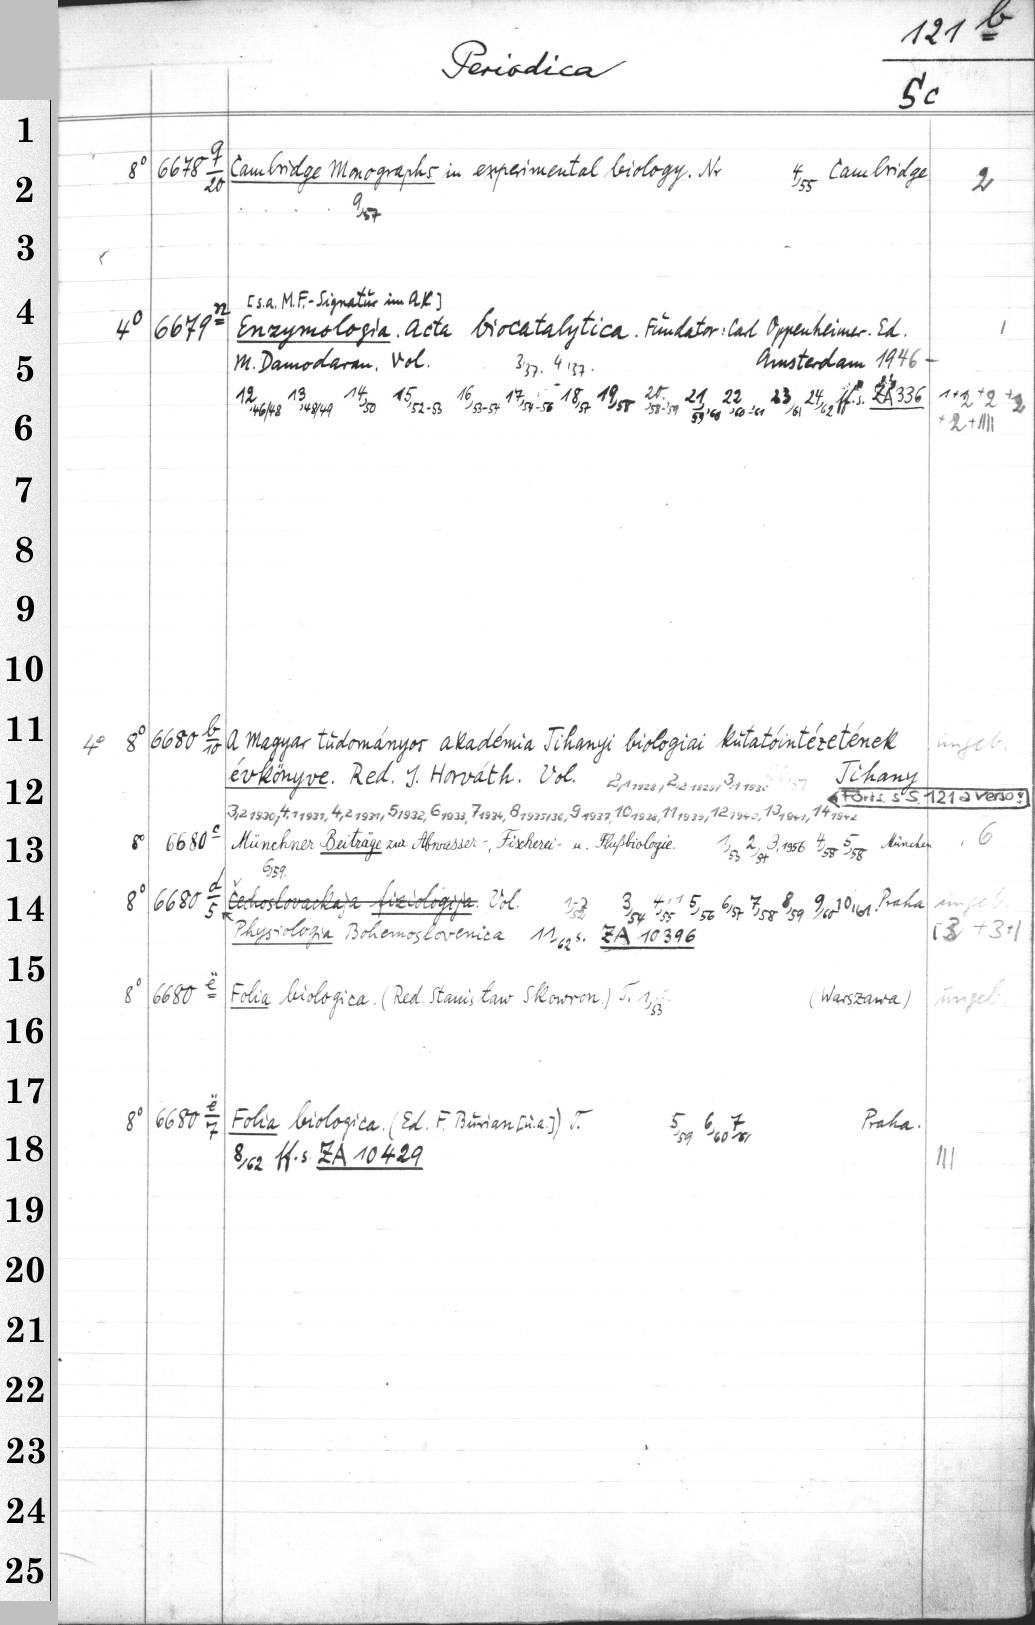 121 b
Periodica
5c
1
2
3
4
5
6
7
8
9
10
11
12
13
14
15
16
17
18
19
20
21
22
23
24
25
8° 6678 q/20 Cambridge Monographs in experimental biology. Nr 4/55 Cambridge 2
9/57
[s.a. M.F.-Signatur im AK]
4° 6679 n Enzymologia. Acta biocatalytica. Fundator: Carl Oppenheimer. Ed. 1
M. Damodaran. Vol. 3,37. 4,37. Amsterdam 1946 –
12,46/48 13,48/49 14/50 15/52-53 16/53-54 17/54-56 18/57 19/58 20/58-59 21/59/60 22/60-61 23/61 24/62 ff. s. ZA 336 1+2+2+2
+2+||||
4° 8° 6680 b/10 A Magyar tudományos akadémia Tihanyi biologiai kutatóintézetének ungeb.
évkönyve. Red. J. Horváth. Vol. 2,1 1928, 2,2 1929, 3,1 1930 Tihany
Forts. s. S. 121 a verso!
3,2 1930, 4,1 1931, 4,2 1931, 5 1932, 6 1933, 7 1934, 8 1935/36, 9 1937, 10 1938, 11 1939, 12 1940, 13 1941, 14 1942
8° 6680 c Münchner Beiträge zur Abwasser-, Fischerei- u. Flußbiologie. 1/53 2/54 3,1956 4/58 5/58 München 6
6/59.
8° 6680 d/5 Čechoslovackaja fiziologija. Vol. 3/54 4/55 5/56 6/57 7/58 8/59 9/60 10/61. Praha ungeb.
Physiologia Bohemoslovenica 11/62 s. ZA 10396 [3 +3+|
8° 6680 ë Folia biologica. (Red. Stanisław Skowron.) T. 1/53 (Warszawa) ungeb.
8° 6680 ë/7 Folia biologica. (Ed. F. Burian [u.a.]) T. 5/59 6/60 7/61 Praha.
8/62 ff. s. ZA 10429 |||